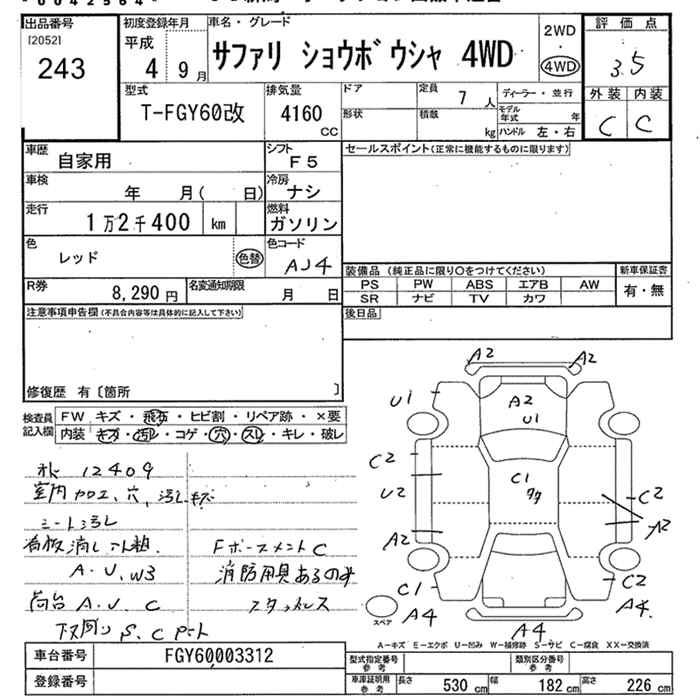 出品番号
I20521
243
初度登録年月
平成
4 9月
車名・グレード
サファリ ショウボウシャ 4WD
2WD
・
4WD
評価点
3.5
外装 内装
C C
型式
T-FGY60改
排気量
4160
CC
ドア
形状
定員
7 人
積載
kg
ディーラー・並行
モデル年式 年
ハンドル 左・右
車歴
自家用
シフト
F5
セールスポイント(正常に機能するものに限ります)
車検
年 月( 日)
冷房
ナシ
走行
1万2千400 km
燃料
ガソリン
色
レッド
色替
色コード
AJ4
装備品 (純正品に限り○をつけてください)
新車保証書
PS PW ABS エアB AW
SR ナビ TV カワ
有・無
R券
8,290 円
名変通知期限
月 日
後日品
注意事項申告欄(不具合内容等は具体的に記入して下さい)
修復歴 有〔箇所 〕
検査員記入欄
FW キズ・飛石・ヒビ割・リペア跡・×要
内装 キズ・汚レ・コゲ・穴・スレ・キレ・破レ
12409
室内加工、穴、汚レキズ
シート汚レ
A.U.W3
荷台 A.U.C
下回り S.C
FバースメントC
消防用具あるのみ
スタッドレス
A2
A2
U1
A2
U1
C2
U2
C1
C2
A2
A2
C1
C2
A4
A4
A4
スペア
A-キズ E-エクボ U-凹み W-補修跡 S-サビ C-腐食 XX-交換済
車台番号
FGY60003312
登録番号
型式指定番号
参考
類別区分番号
参考
車庫証明用
参考
長さ 530 cm 幅 182 cm 高さ 226 cm